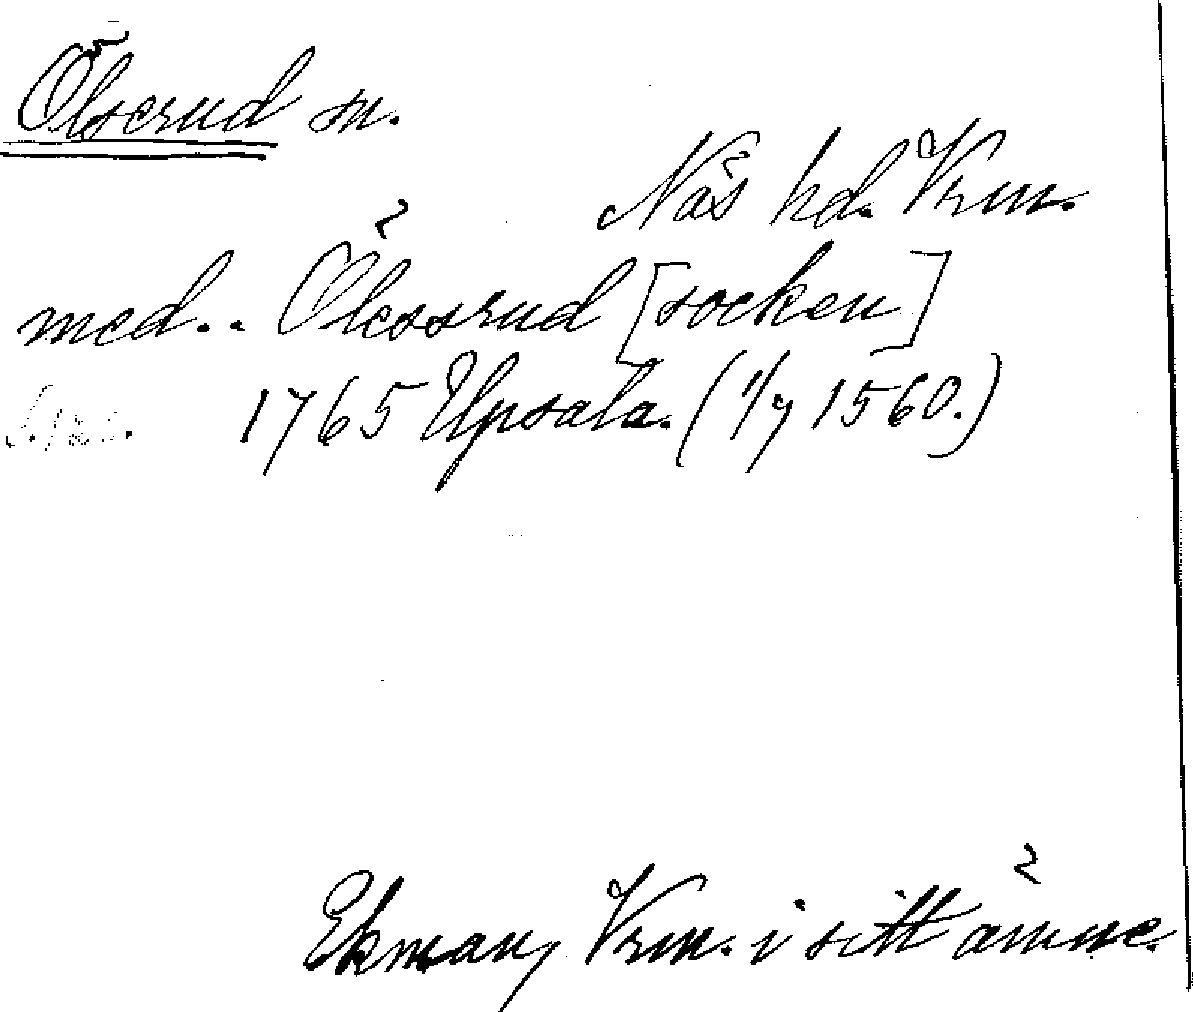 Ölserud sn.
Näs hd. Vrm.
med.. Ölessrud [socken]
1765 Upsala. (1/7 1560.)
Ekman, Vrm. i sitt ämne.